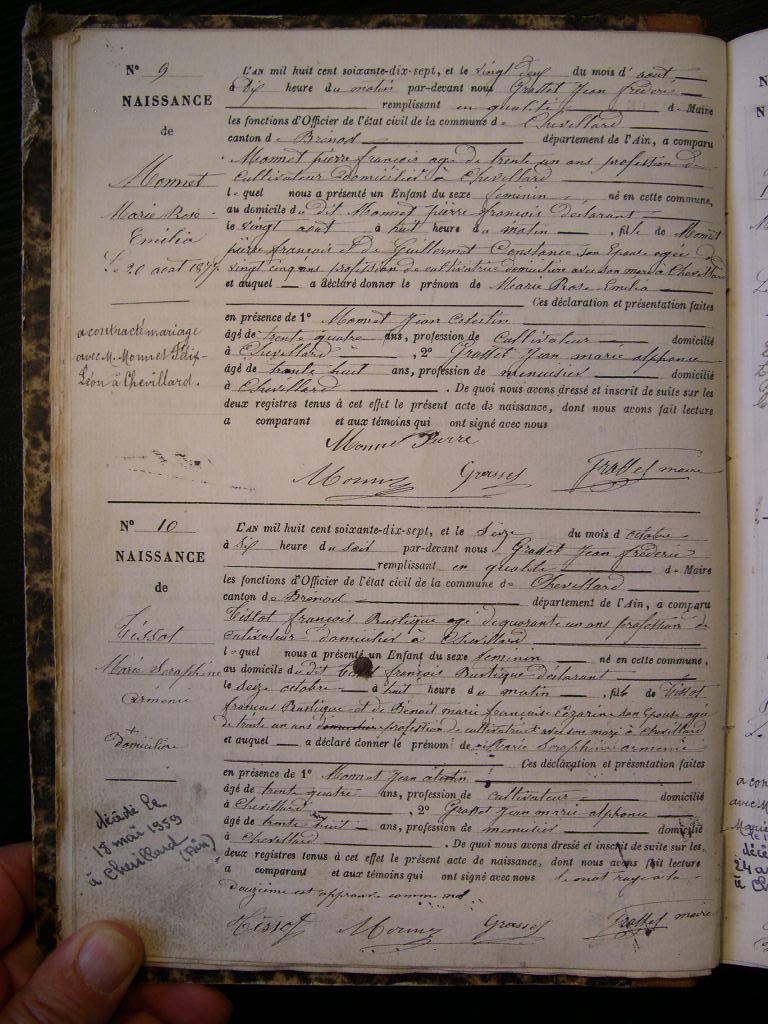 N° 9
NAISSANCE
de
Monnet
Marie Rose
Emélia
Le 20 aout 1877.
a contracté mariage
avec M. Monnet Félix-
Léon à Chevillard.
L'AN mil huit cent soixante-dix-sept, et le vingt deux du mois d' aout
à dix heure du matin par-devant nous Grasset Jean frédéric
remplissant en qualité de Maire
les fonctions d'Officier de l'état civil de la commune de Chevillard
canton de Brénod département de l'Ain, a comparu
Monnet pierre françois agé de trente un ans profession de
cultivateur domicilié à Chevillard
lequel nous a présenté un Enfant du sexe féminin né en cette commune,
au domicile du dit Monnet pierre françois déclarant
le vingt aout à huit heure du matin , fille de Monnet
pierre françois et de Guillermet Constance son Epouse agée de
vingt cinq ans profession de cultivatrice domiciliée avec son mari à Chevillard
et auquel a déclaré donner le prénom de Marie Rose Emélia
Ces déclaration et présentation faites
en présence de 1° Monnet Jean Célestin
âgé de trente quatre ans, profession de Cultivateur domicilié
à Chevillard , 2° Grasset Jean marie alphonse
âgé de trente huit ans, profession de menuisier domicilié
à Chevillard . De quoi nous avons dressé et inscrit de suite sur les
deux registres tenus à cet effet le présent acte de naissance, dont nous avons fait lecture
a comparant et aux témoins qui ont signé avec nous
Monnet Pierre
Monnet Grasset Grasset maire
N° 10
NAISSANCE
de
Tissot
Marie Séraphine
Arménie
+
domiciliée
décédée le
18 mai 1959
à Chevillard
(Ain)
L'AN mil huit cent soixante-dix-sept, et le Seize du mois d octobre
à six heure du soir par-devant nous Grasset Jean frédéric
remplissant en qualité de Maire
les fonctions d'Officier de l'état civil de la commune de Chevillard
canton de Brénod département de l'Ain, a comparu
Tissot françois Rustique agé de quarante un ans profession de
cultivateur domicilié à Chevillard
lequel nous a présenté un Enfant du sexe féminin né en cette commune,
au domicile du dit Tissot françois Rustique déclarant
le seize octobre à huit heure du matin , fille de Tissot
françois Rustique et de Benoit marie françoise Cézarine son Epouse agée
de trente un ans domiciliée profession de cultivatrice et avec son mari à Chevillard
et auquel a déclaré donner le prénom de Marie Séraphine arménie
Ces déclaration et présentation faites
en présence de 1° Monnet Jean célestin
âgé de trente quatre ans, profession de cultivateur domicilié
à Chevillard , 2° Grasset Jean marie alphonse
âgé de trente huit ans, profession de menuisier domicilié
à Chevillard . De quoi nous avons dressé et inscrit de suite sur les
deux registres tenus à cet effet le présent acte de naissance, dont nous avons fait lecture
a comparant et aux témoins qui ont signé avec nous le mot rayé à la
Douzième est approuvé comme nul
Tissot Monnet Grasset Grasset maire